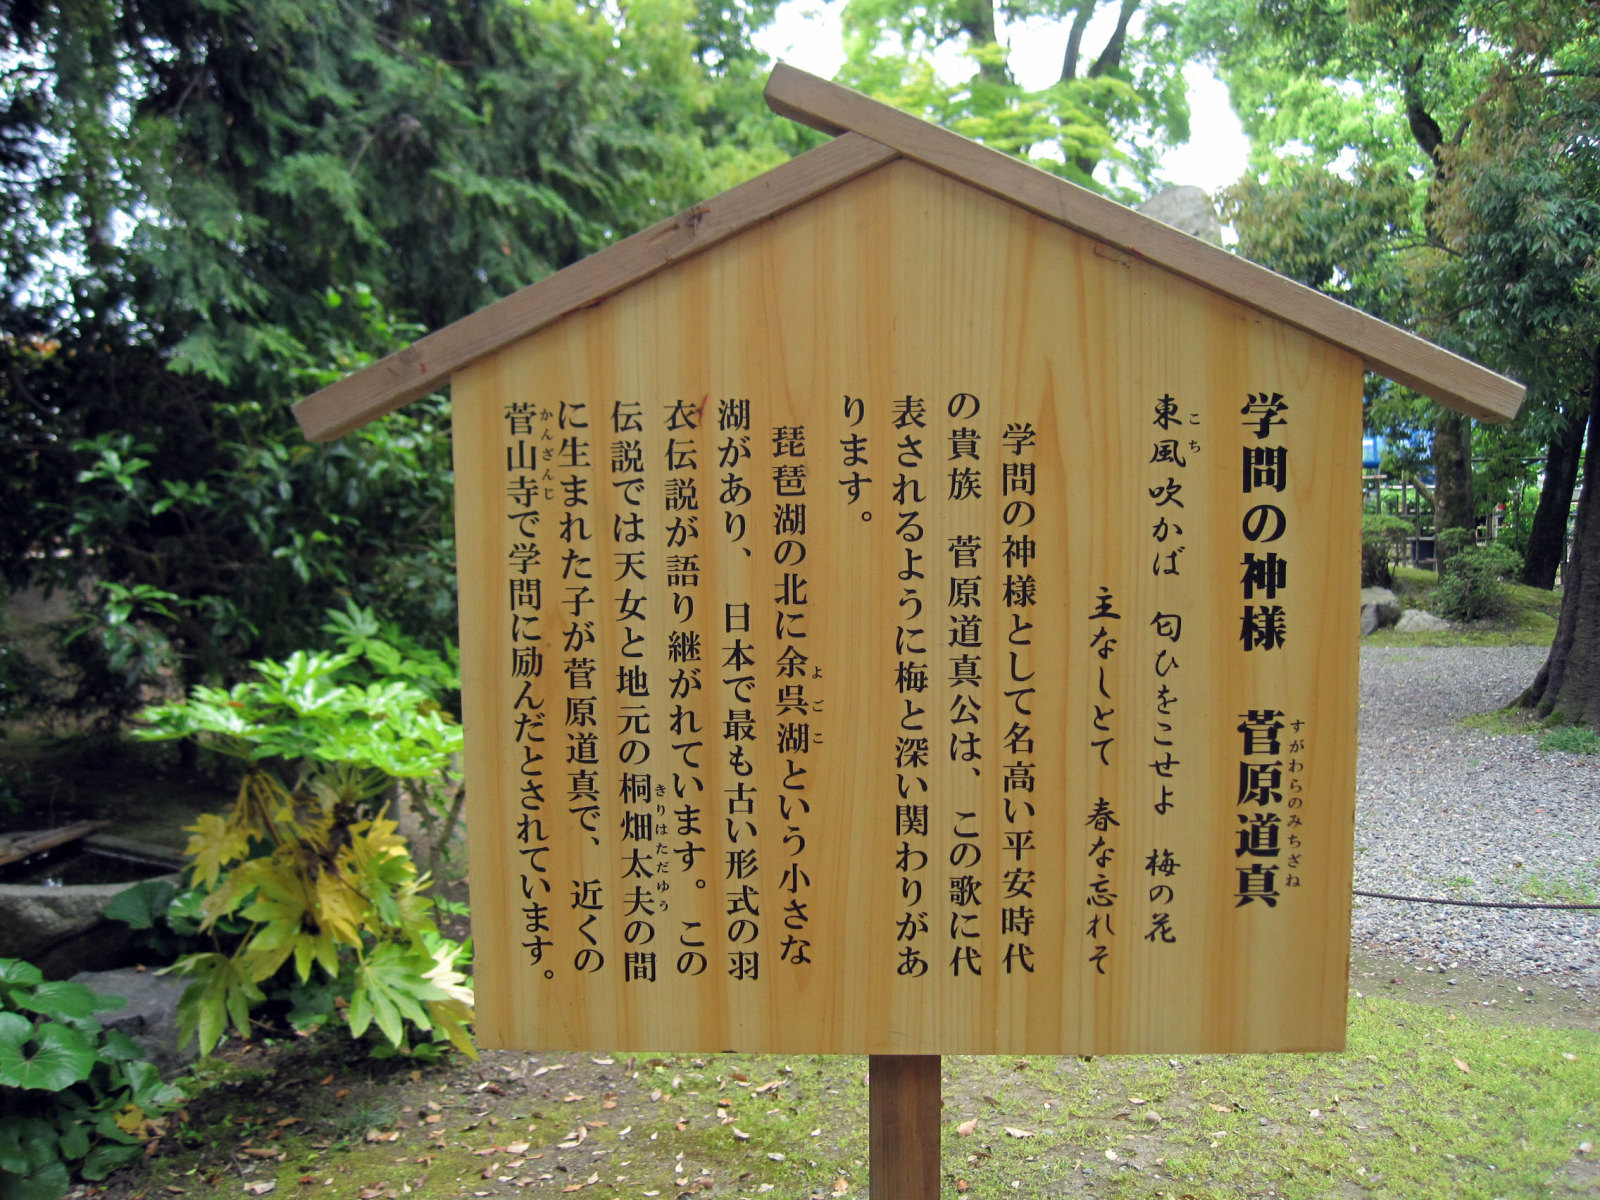 学問の神様 菅原道真
すがわらのみちざね
東風吹かば 匂ひをこせよ 梅の花
こち
主なしとて 春な忘れそ
学問の神様として名高い平安時代
の貴族 菅原道真公は、この歌に代
表されるように梅と深い関わりがあ
ります。
琵琶湖の北に余呉湖という小さな
よごこ
湖があり、日本で最も古い形式の羽
衣伝説が語り継がれています。この
伝説では天女と地元の桐畑太夫の間
きりはただゆう
に生まれた子が菅原道真で、近くの
菅山寺で学問に励んだとされています。
かんざんじ